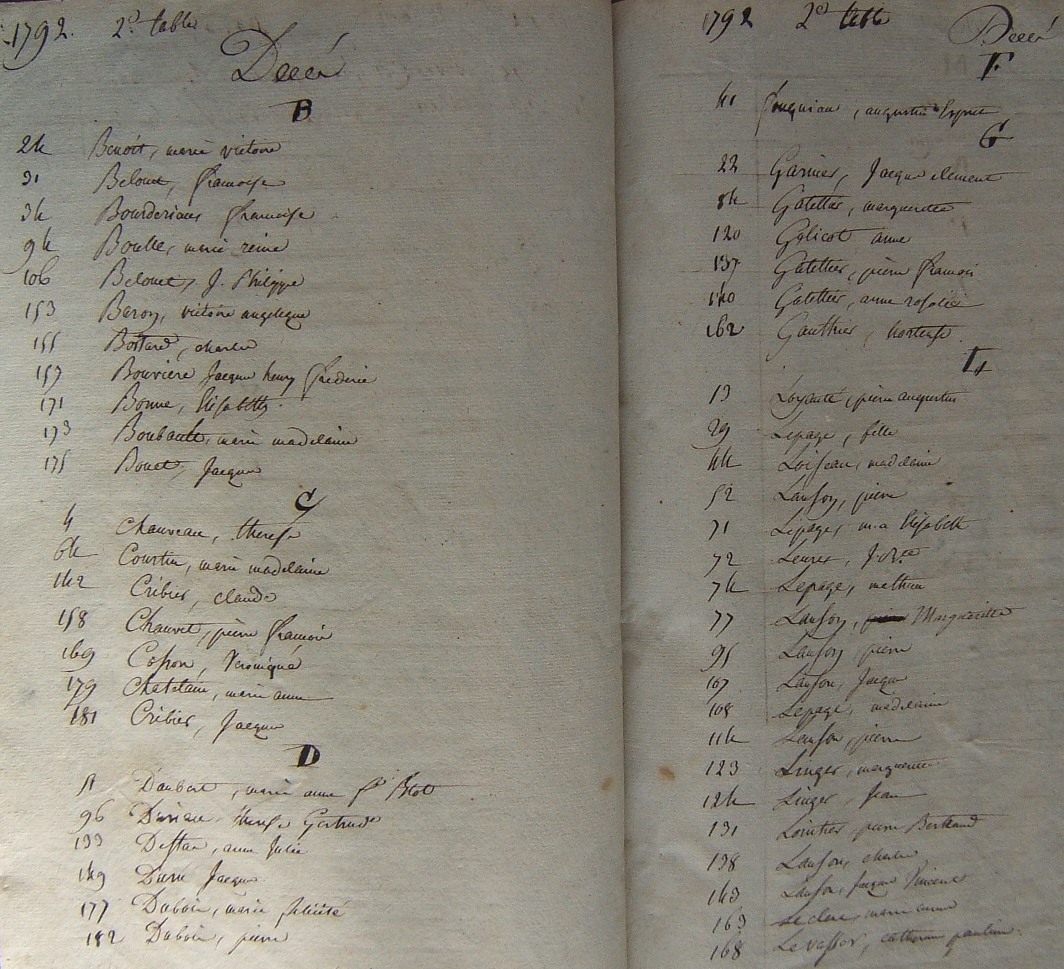 1792. 2e table
Décés
B
24 Benoit, marie victoire
31 Belouet, francoise
34 francoise
94 Boulle, marie reine
106 Belouet, J. Philippe
153 Baron, victoire angelique
155 charles
157 Bouviere Jacques henry frederic
171 Bonne, Elisabeth.
173 marie madelaine
175 Bouet, Jacques
C
4 Chauveau, therese
64 Courtin, marie madelaine
142 Cribier, claude
158 Chauvet, pierre francois
169 Cosson, Veronique
179 Chatelain, marie anne
181 Cribier, Jacques
D
51 marie anne fe Blot
96 therese Gertrude
133 anne Julie
149 Jacques
177 Dubois, marie felicité
182 Dubois, pierre
1792 2e table
Décés
F
41 augustin Esprit
G
22 Garnier, Jacques clement
84 Gatellier, marguerite
120 Galicot anne
137 Gatellier, pierre francois
140 Gatellier, anne rosalie
162 Gauthier, hortense.
L
13 pierre augustin
29 Lepage, fille
44 Loiseau, madelaine
52 Lanson, pierre
71 Lepage, m.e Elisabeth
72
74 Lepage, mathieu
77 Lanson, Margueritte
95 Lanson, pierre
107 Lanson, Jacques
108 Lepage, madelaine
114 Lanson, pierre
123 Linger, marguerite
124 Linger, Jean
131 Lointier, pierre Bertrand
138 Lanson, charles
143 Lanson, Jacques Vincent
163 Leclerc, marie anne
168 Levassor, catherine pauline.